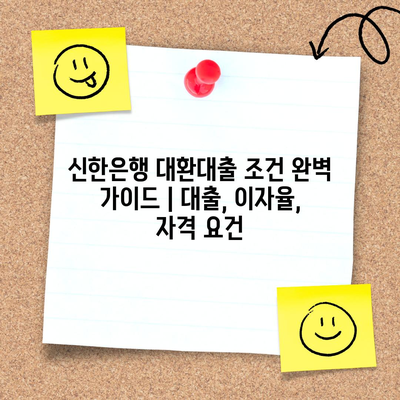 신한은행 대환대출 조건 완벽
가이드 | 대출, 이자율,
자격 요건